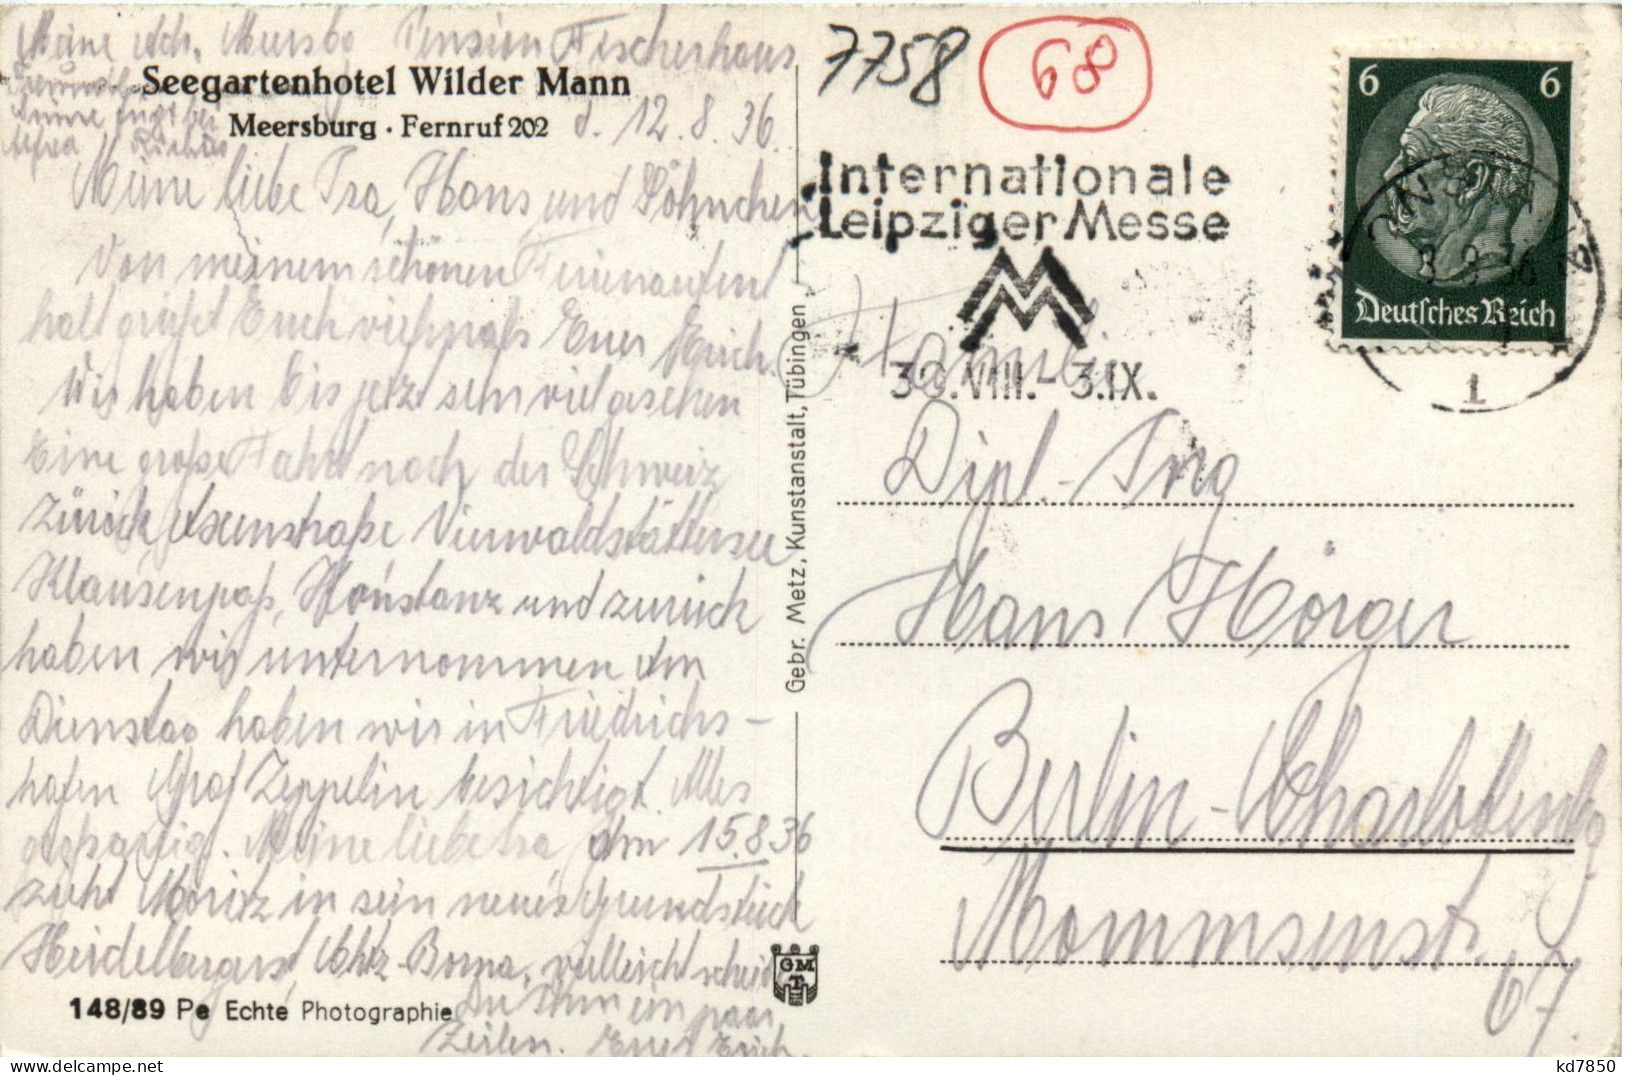 Meine Adr. Mersbg Pension Fischerhaus
Seegartenhotel Wilder Mann
Meersburg · Fernruf 202
d. 12.8.36.
Meine liebe Isa, Hans und Söhnchen
Von meinem schönen Ferienaufent
halt grüßt Euch vielmals Euer Erich.
Wir haben bis jetzt sehr viel gesehen
Eine große Fahrt nach der Schweiz
Zürich Axenstraße Vierwaldstättersee
Klausenpaß, Konstanz und zurück
haben wir unternommen Am
Dienstag haben wir in Friedrichs-
hafen Graf Zeppelin besichtigt. Alles
großartig. Meine liebe Isa am 15.8.36
zieht Moritz in sein neues Grundstück
Heidelbergerst, Borna, vielleicht schreib
Du Ihm ein paar
Zeilen. Euer Erich.
148/89 Pe Echte Photographie
Gebr. Metz, Kunstanstalt, Tübingen
GMT
7758
68
Internationale
Leipziger Messe
30.VIII.-3.IX.
6 6
Deutsches Reich
1
Familie
Dipl.-Ing.
Hans Hörger
Berlin-Charlottenbg
Mommsenstr.
67.
kd7850